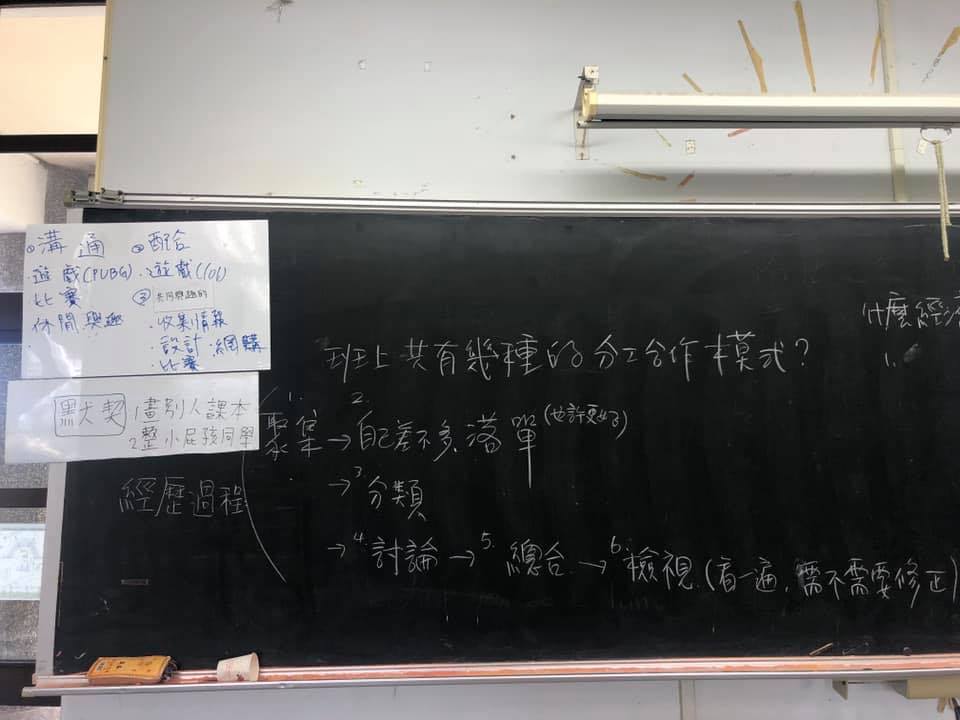 ①溝通 ②配合
·遊戲(PUBG) ·遊戲(lol)
比賽 ③共同興趣的
休閒興趣 ·收集情報
·設計·網購
·比賽
默契 1畫別人課本
2整小屁孩同學
什麼經
1.
班上共有幾種的分工合作模式?
經歷過程
1.聚集→2.自己差不多落單(也許更好)
→3.分類
→4.討論→5.總合→6.檢視(看一遍,需不需要修正)